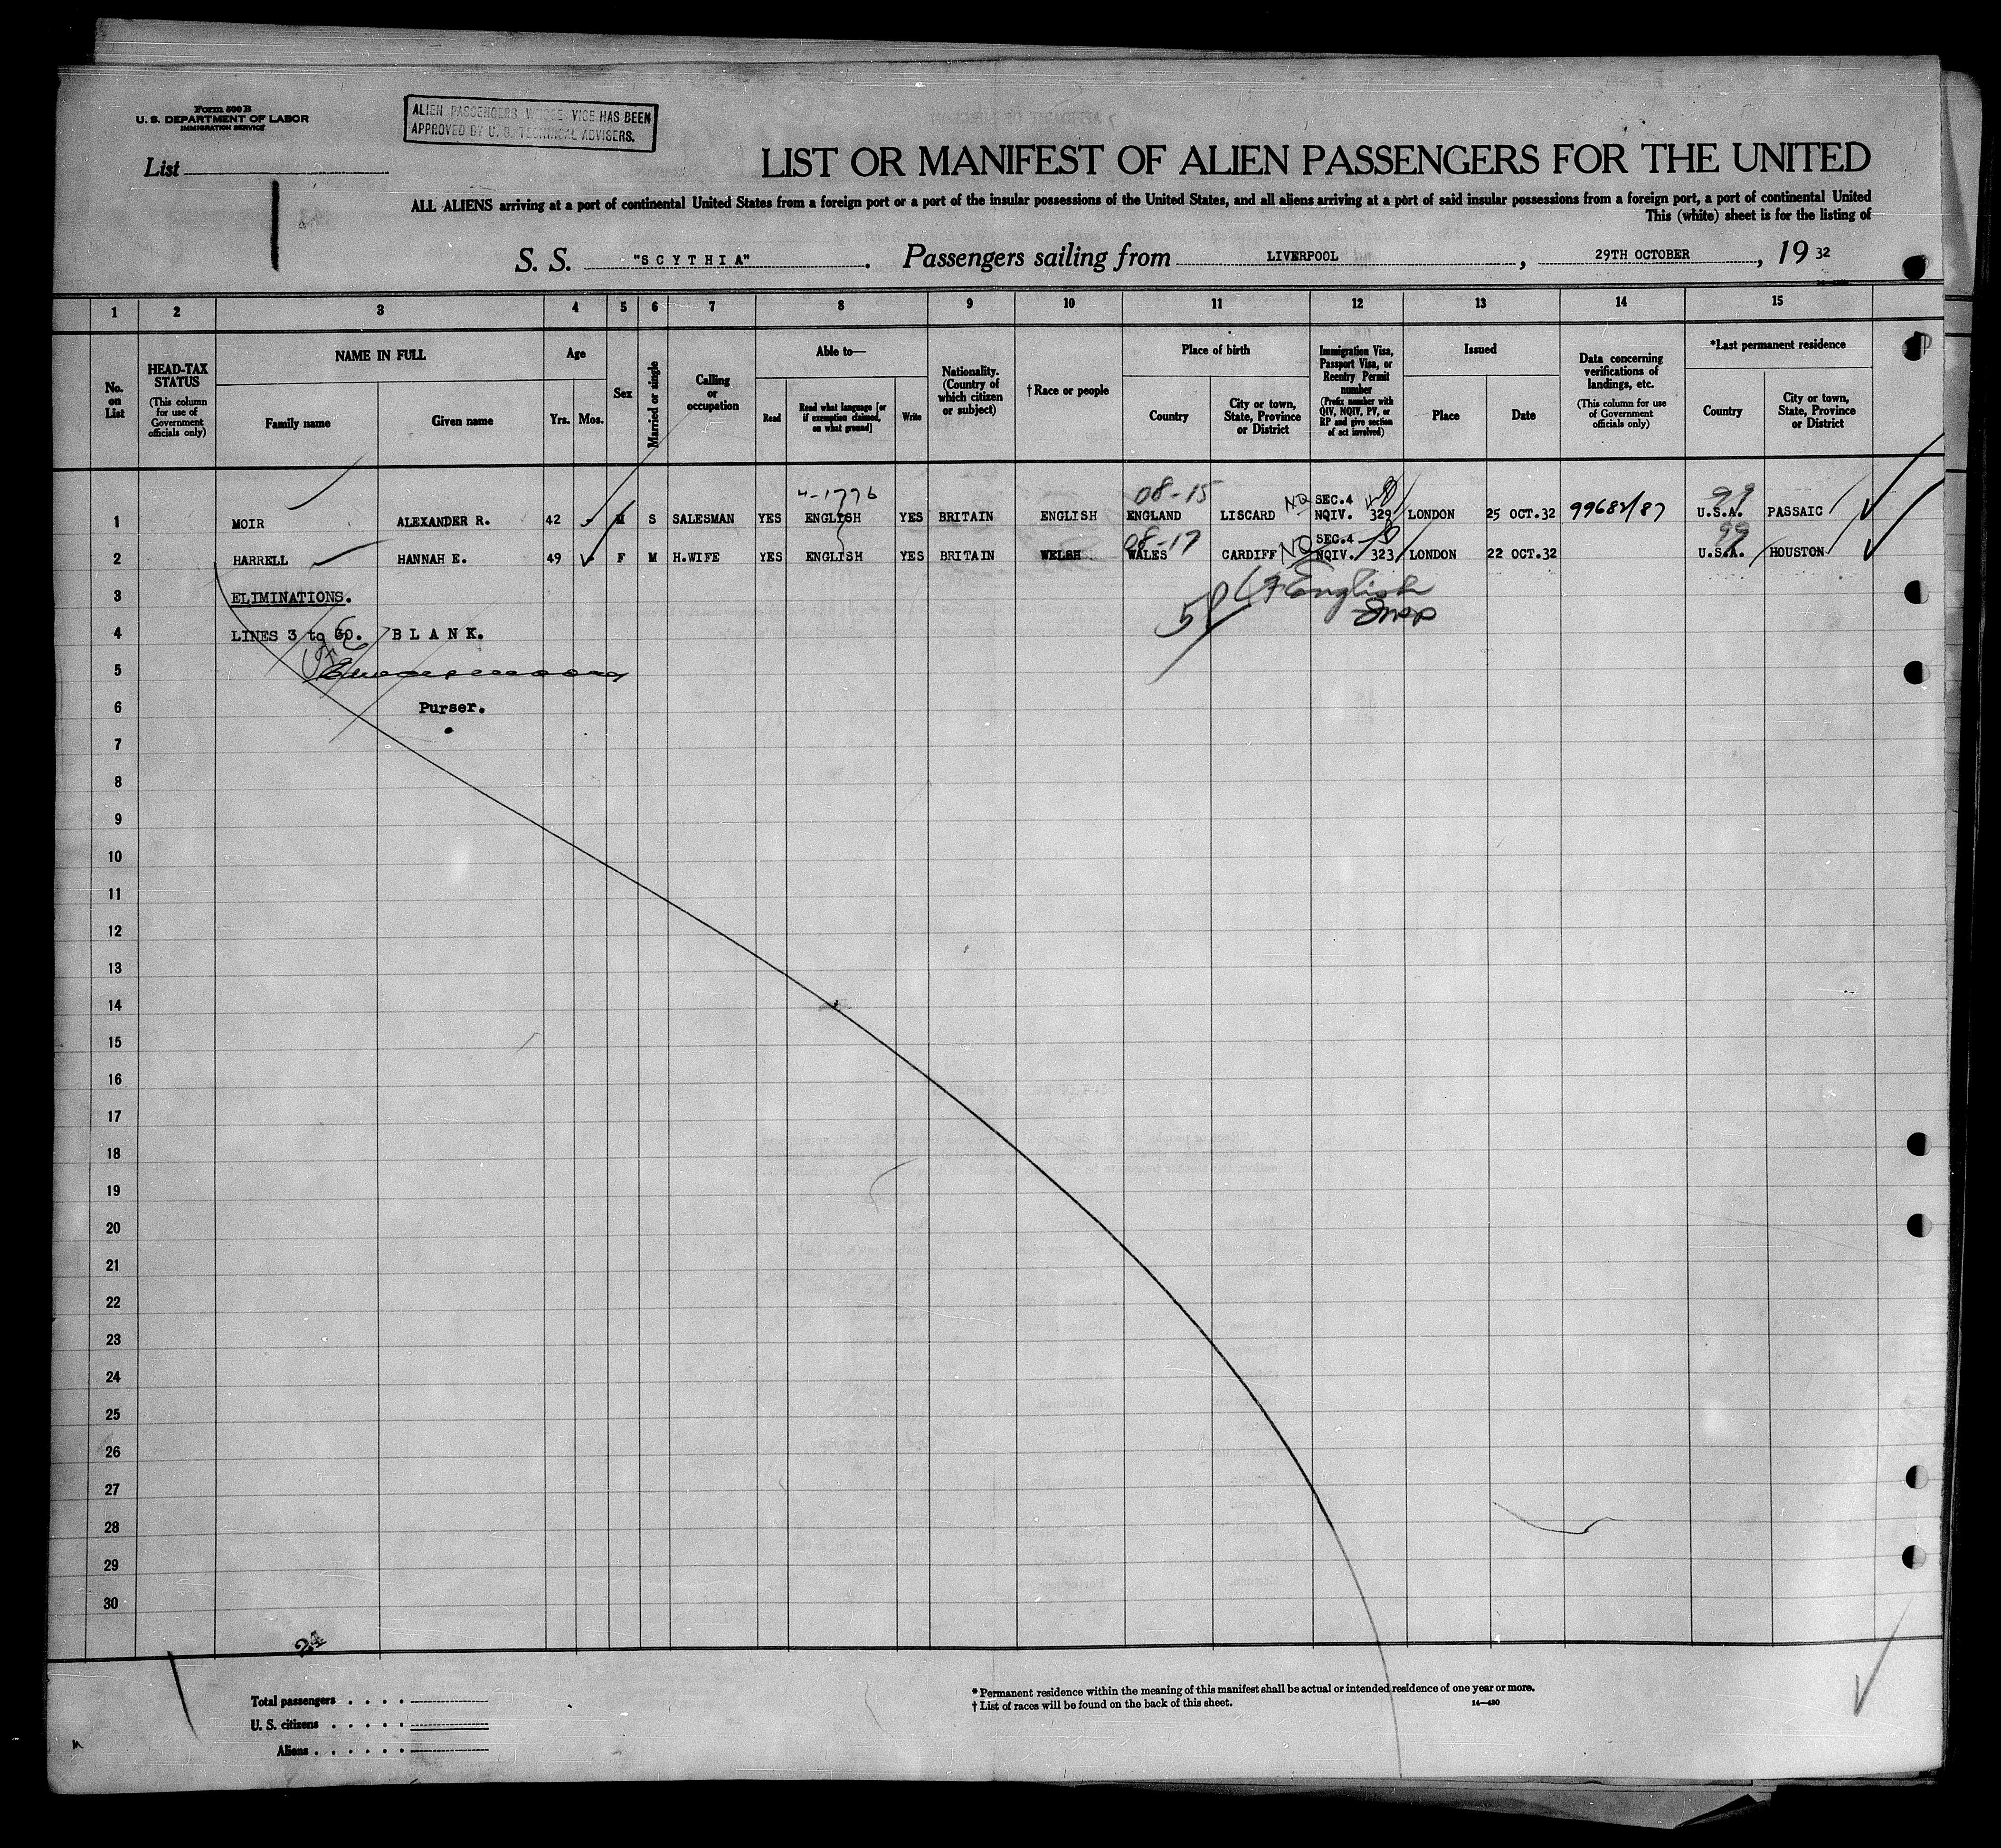 Form 500 B
U. S. DEPARTMENT OF LABOR
IMMIGRATION SERVICE
ALIEN PASSENGERS WHOSE VICE HAS BEEN
APPROVED BY U. S. TECHNICAL ADVISERS.
List
LIST OR MANIFEST OF ALIEN PASSENGERS FOR THE UNITED
ALL ALIENS arriving at a port of continental United States from a foreign port or a port of the insular possessions of the United States, and all aliens arriving at a port of said insular possessions from a foreign port, a port of continental United
This (white) sheet is for the listing of
S. S. "SCYTHIA". Passengers sailing from LIVERPOOL, 29TH OCTOBER, 19 32
1 2 3 4 5 6 7 8 9 10 11 12 13 14 15
No. on List
HEAD-TAX STATUS (This column for use of Government officials only)
NAME IN FULL
Family name
Given name
Age
Yrs. Mos.
Sex
Married or single
Calling or occupation
Able to—
Read
Read what language [or if exemption claimed, on what ground]
Write
Nationality. (Country of which citizen or subject)
†Race or people
Place of birth
Country
City or town, State, Province or District
Immigration Visa, Passport Visa, or Reentry Permit number (Prefix number with QIV, NQIV, PV, or RP and give section of act involved)
Issued
Place
Date
Data concerning verifications of landings, etc. (This column for use of Government officials only)
*Last permanent residence
Country
City or town, State, Province or District
4-1776 08-15 NQ SEC.4 99
1 MOIR ALEXANDER R. 42 M S SALESMAN YES ENGLISH YES BRITAIN ENGLISH ENGLAND LISCARD NQIV. 329 LONDON 25 OCT.32 99682/87 U.S.A. PASSAIC
08-17 NQ SEC.4 99
2 HARRELL HANNAH E. 49 F M H.WIFE YES ENGLISH YES BRITAIN WELSH WALES CARDIFF NQIV. 323 LONDON 22 OCT.32 U.S.A. HOUSTON
3 ELIMINATIONS. English
4 LINES 3 to 30. BLANK.
5
6 Purser.
7
8
9
10
11
12
13
14
15
16
17
18
19
20
21
22
23
24
25
26
27
28
29
30
24
Total passengers
U. S. citizens
Aliens
* Permanent residence within the meaning of this manifest shall be actual or intended residence of one year or more.
† List of races will be found on the back of this sheet.
14—430